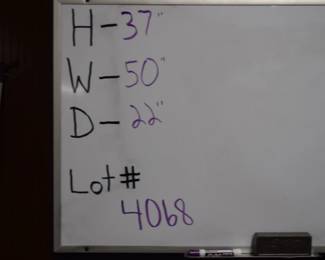 H-37"
W-50"
D-22"
Lot#
4068